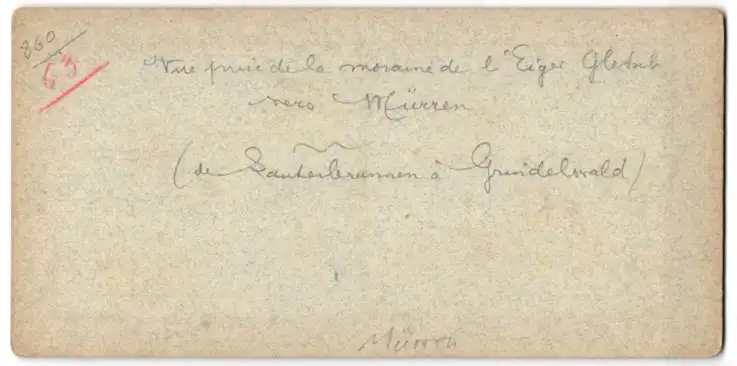 860
63
Vue prise de la moraine de l'Eiger Gletsch
vers Mürren
(de Lauterbrunnen à Grindelwald)
Mürren